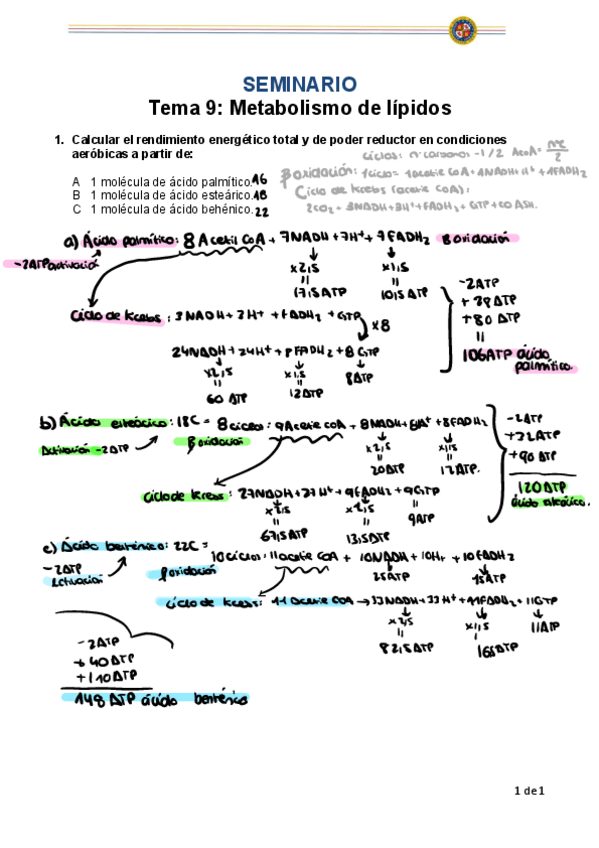 SEMINARIO
Tema 9: Metabolismo de lípidos
1. Calcular el rendimiento energético total y de poder reductor en condiciones
aeróbicas a partir de:
ciclos: nºcarbonos -1/2 AcoA= nºC/2
A 1 molécula de ácido palmítico. 16
B 1 molécula de ácido esteárico. 18
C 1 molécula de ácido behénico. 22
β oxidación: 1ciclo = 1acetil CoA + 1NADH+H+ + 1FADH2
Ciclo de Krebs (acetil CoA):
2CO2 + 3NADH+3H+ + FADH2 + GTP + COASH.
a) Ácido palmítico: 8 Acetil CoA + 7NADH + 7H+ + 7FADH2 β oxidación
-2ATP activación
x2,5 x1,5
= =
17,5 ATP 10,5 ATP
Ciclo de Krebs: 3NADH + 3H+ + FADH2 + GTP
x8
24NADH + 24H+ + 8FADH2 + 8GTP
x2,5 x1,5 8ATP
= =
60 ATP 12ATP
-2ATP
+ 28ATP
+80 ATP
=
106ATP ácido palmítico.
b) Ácido esteárico: 18C = 8 ciclos: 9Acetil CoA + 8NADH + 8H+ + 8FADH2
Activación -2ATP β oxidación
x2,5 x1,5
= =
20ATP 12ATP.
Ciclo de Krebs: 27NADH + 27H+ + 9FADH2 + 9GTP
x2,5 x1,5 =
= 9ATP
67,5ATP 13,5ATP
-2ATP
+32ATP
+90 ATP
120ATP
ácido esteárico.
c) Ácido behénico: 22C =
10 ciclos: 11acetil CoA + 10NADH + 10H+ + 10FADH2
-2ATP
activación
β oxidación
25ATP 15ATP
Ciclo de Krebs: 11 acetil COA → 33NADH + 33H+ + 11FADH2 + 11GTP
x2,5 x1,5 11ATP
=
82,5ATP
-2ATP
+ 40ATP
+110 ATP
148 ATP ácido behénico
1 de 1